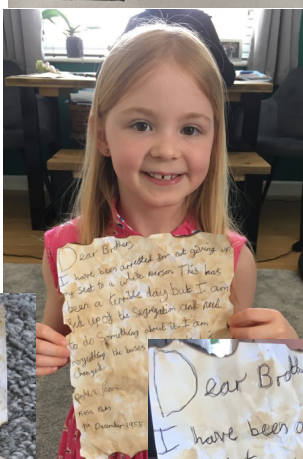 Dear Brother,
I have been arrested for not giving up
my seat to a white person. This has
been a terrible day but I am
fed up of the Segregation and need
to do Something about it. I am
boycotting the buses
changed
Rosa Parks
1st December 1955
Dear Broth
I have been a